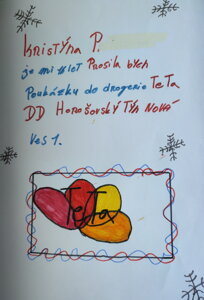 Kristýna P.
je mi let Prosila bych
Poukázku do drogerie TeTa
DD Horšovský Týn Nové
Ves 1.
TeTa